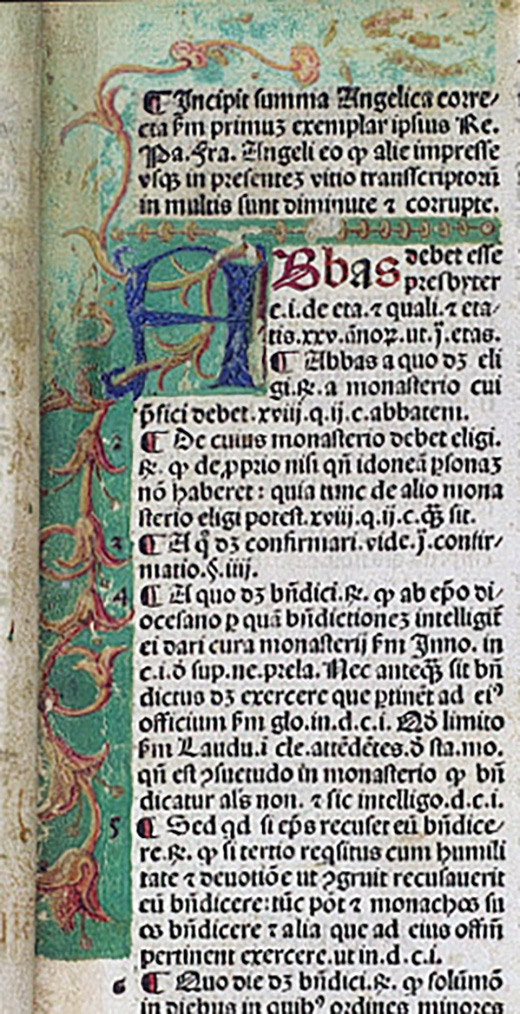 ¶ Incipit summa Angelica corre/
cta ẜm primuꝫ exemplar ipsius Re.
Pa. Fra. Angeli eo ꝙ alie impresse
vsqꝫ in presenteꝫ vitio transscriptorū
in multis sunt diminute ⁊ corrupte.
ABbas debet esse
presbyter
c.i.de eta.⁊ quali.⁊ eta/
tis.xxv.ānoꝝ.ut.j̄.etas.
¶ Abbas a quo dꝫ eli
gi.℞.a monasterio cui
p̄fici debet.xviij.q.ij.c.abbatem.
2 ¶ De cuius monasterio debet eligi.
℞. ꝙ de ꝓprio nisi qn̄ idoneā ꝑsonaꝫ
nō haberet : quia tunc de alio mona
sterio eligi potest.xviij.q.ij.c.qꝫ̄ sit.
3 ¶ A q̊ dꝫ confirmari.vide.j̄.confir/
matio.§.iiij.
4 ¶ A quo dꝫ bn̄dici.℞. ꝙ ab ep̄o di/
ocesano ꝑ quā bn̄dictioneꝫ intelligit̄
ei dari cura monasterij ẜm Inno. in
c.i.ð sup.ne.prela. Nec anteqꝫ̄ sit bn̄
dictus dꝫ exercere que ꝑtinēt ad eiꝰ
officium ẜm glo.in.d.c.i. Qð limito
ẜm Laudu.ī cle.attēdētes.ð sta.mo.
qn̄ est ꝯsuetudo in monasterio ꝙ bn̄
dicatur al's non. ⁊ sic intelligo.d.c.i.
5 ¶ Sed qd si ep̄s recuset eū bn̄dice/
re.℞. ꝙ si tertio reqsitus cum humili
tate ⁊ deuotiōe ut ꝯgruit recusauerit
eū bn̄dicere:tūc pōt ⁊ monachos su
os bn̄dicere ⁊ alia que ad eius offin̄
pertinent exercere.ut in.d.c.i.
6 ¶ Quo die dꝫ bn̄dici.℞. ꝙ solūmō
in diebus in quibꝰ ordines minores